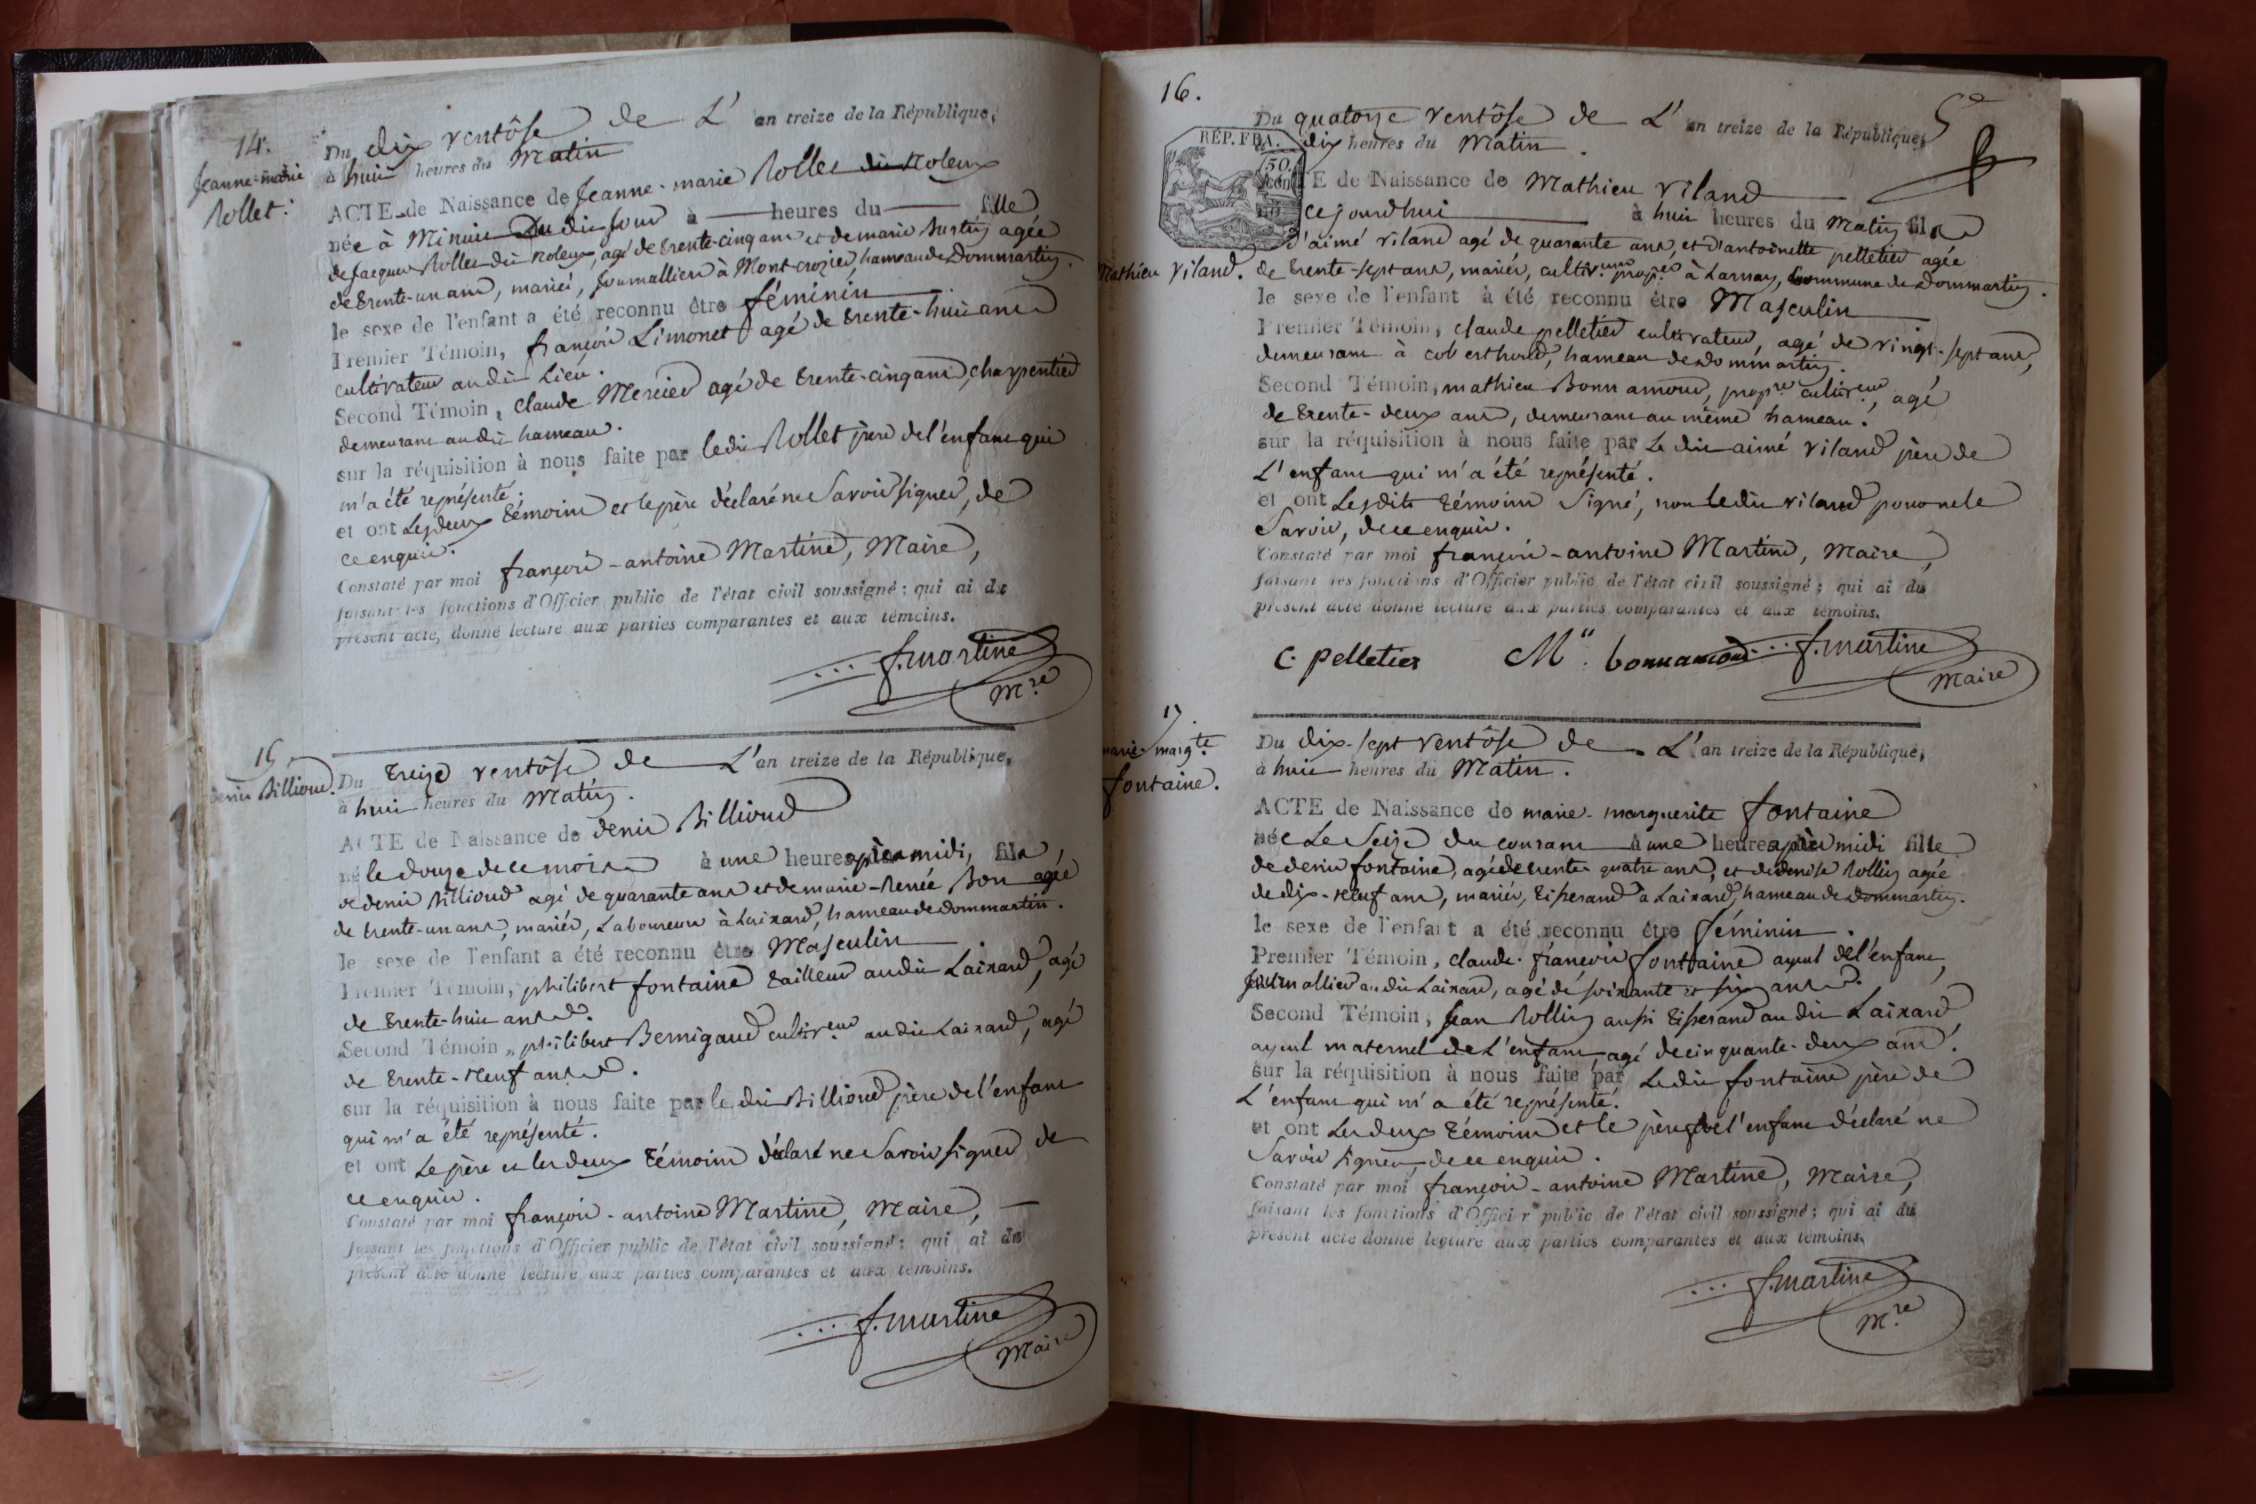 14.
Jeanne-marie
Rollet.
Du dix ventôse de L'an treize de la République,
à huit heures du Matin
ACTE de Naissance de Jeanne-marie Rollet dit Noleux
née à Minuit Du dit Jour à heures du fille
de Jacques Rollet dit Noleux, agé de trente-cinq ans et de marie Burtin agée
de trente-un ans, mariés, Journallier à Mont-crozier, hameau de Dommartin.
le sexe de l'enfant a été reconnu être féminin
Premier Témoin, françois Limonet agé de trente-huit ans
cultivateur au dit Lieu.
Second Témoin, claude Mercier agé de trente-cinq ans, charpentier
demeurant au dit hameau.
sur la réquisition à nous faite par le dit Rollet père de l'enfant qui
m'a été représenté.
et ont Les deux témoins et le père déclaré ne Savoir signer, de
ce enquis.
Constaté par moi françois-antoine Martine, Maire,
faisant les fonctions d'Officier public de l'état civil soussigné; qui ai du
présent acte, donné lecture aux parties comparantes et aux témoins.
f. martine
Mre
15.
denis Billioud.
Du treize ventôse de L'an treize de la République,
à huit heures du Matin.
ACTE de Naissance de denis Billioud
né le douze de ce mois à une heure après midi, fils
de denis Billioud agé de quarante ans et de marie-Renée Bon agée
de trente-un ans, mariés, Laboureur à Laixard, hameau de dommartin.
le sexe de l'enfant a été reconnu être Masculin
Premier Témoin, philibert fontaine tailleur au dit Laixard, agé
de trente-huit ans.
Second Témoin, philibert Bernigaud cultiveur au dit Laixard, agé
de trente-neuf ans.
sur la réquisition à nous faite par le dit Billioud père de l'enfant
qui m'a été représenté.
et ont Le père et les deux témoins déclaré ne Savoir signer de
ce enquis.
Constaté par moi françois-antoine Martine, Maire,
faisant les fonctions d'Officier public de l'état civil soussigné; qui ai du
présent acte donné lecture aux parties comparantes et aux témoins.
f. martine
Maire
16.
5e
Du quatorze ventôse de L'an treize de la République,
RÉP. FRA.
50
dix heures du Matin.
E de Naissance de Mathieu Viland
ce jourd'hui à huit heures du Matin fils
d'aimé Viland agé de quarante ans, et d'antoinette pelletier agée
Mathieu Viland.
de trente-sept ans, mariés, cultiv.eurs prop.res à Larnay, Commune de Dommartin.
le sexe de l'enfant à été reconnu être Masculin
Premier Témoin, claude pelletier cultivateur, agé de vingt-sept ans,
demeurant à , hameau de dommartin.
Second Témoin, mathieu Bonnamour, prop.re cultiv.eur, agé
de trente-deux ans, demeurant au même hameau.
sur la réquisition à nous faite par Le dit aimé viland père de
L'enfant qui m'a été représenté.
et ont Lesdits témoins Signé, non le dit viland pour ne le
Savoir, de ce enquis.
Constaté par moi françois-antoine Martine, Maire,
faisant les fonctions d'Officier public de l'état civil soussigné; qui ai du
présent acte donné lecture aux parties comparantes et aux témoins.
C. pelletier M.u bonnamour f. martine
Maire
17.
marie-marg.te
fontaine.
Du dix-sept ventôse de L'an treize de la République,
à huit heures du Matin.
ACTE de Naissance de marie-marguerite fontaine
née Le Seize du courant à une heure après midi fille
de denis fontaine, agé de trente-quatre ans, et de denise Rollin agée
de dix-neuf ans, mariés, tisserand à Laixard, hameau de Dommartin.
le sexe de l'enfant a été reconnu être féminin.
Premier Témoin, claude-françois fontaine ayeul de l'enfant,
Journallier au dit Laixard, agé de soixante et six ans.
Second Témoin, Jean Rollin aussi tisserand au dit Laixard
ayeul maternel de L'enfant, agé de cinquante-deux ans.
sur la réquisition à nous faite par Le dit fontaine père de
L'enfant qui m'a été représenté.
et ont Les deux témoins et le père de l'enfant déclaré ne
Savoir signer, de ce enquis.
Constaté par moi françois-antoine Martine, Maire,
faisant les fonctions d'Officier public de l'état civil soussigné; qui ai du
présent acte donné lecture aux parties comparantes et aux témoins.
f. martine
Mre